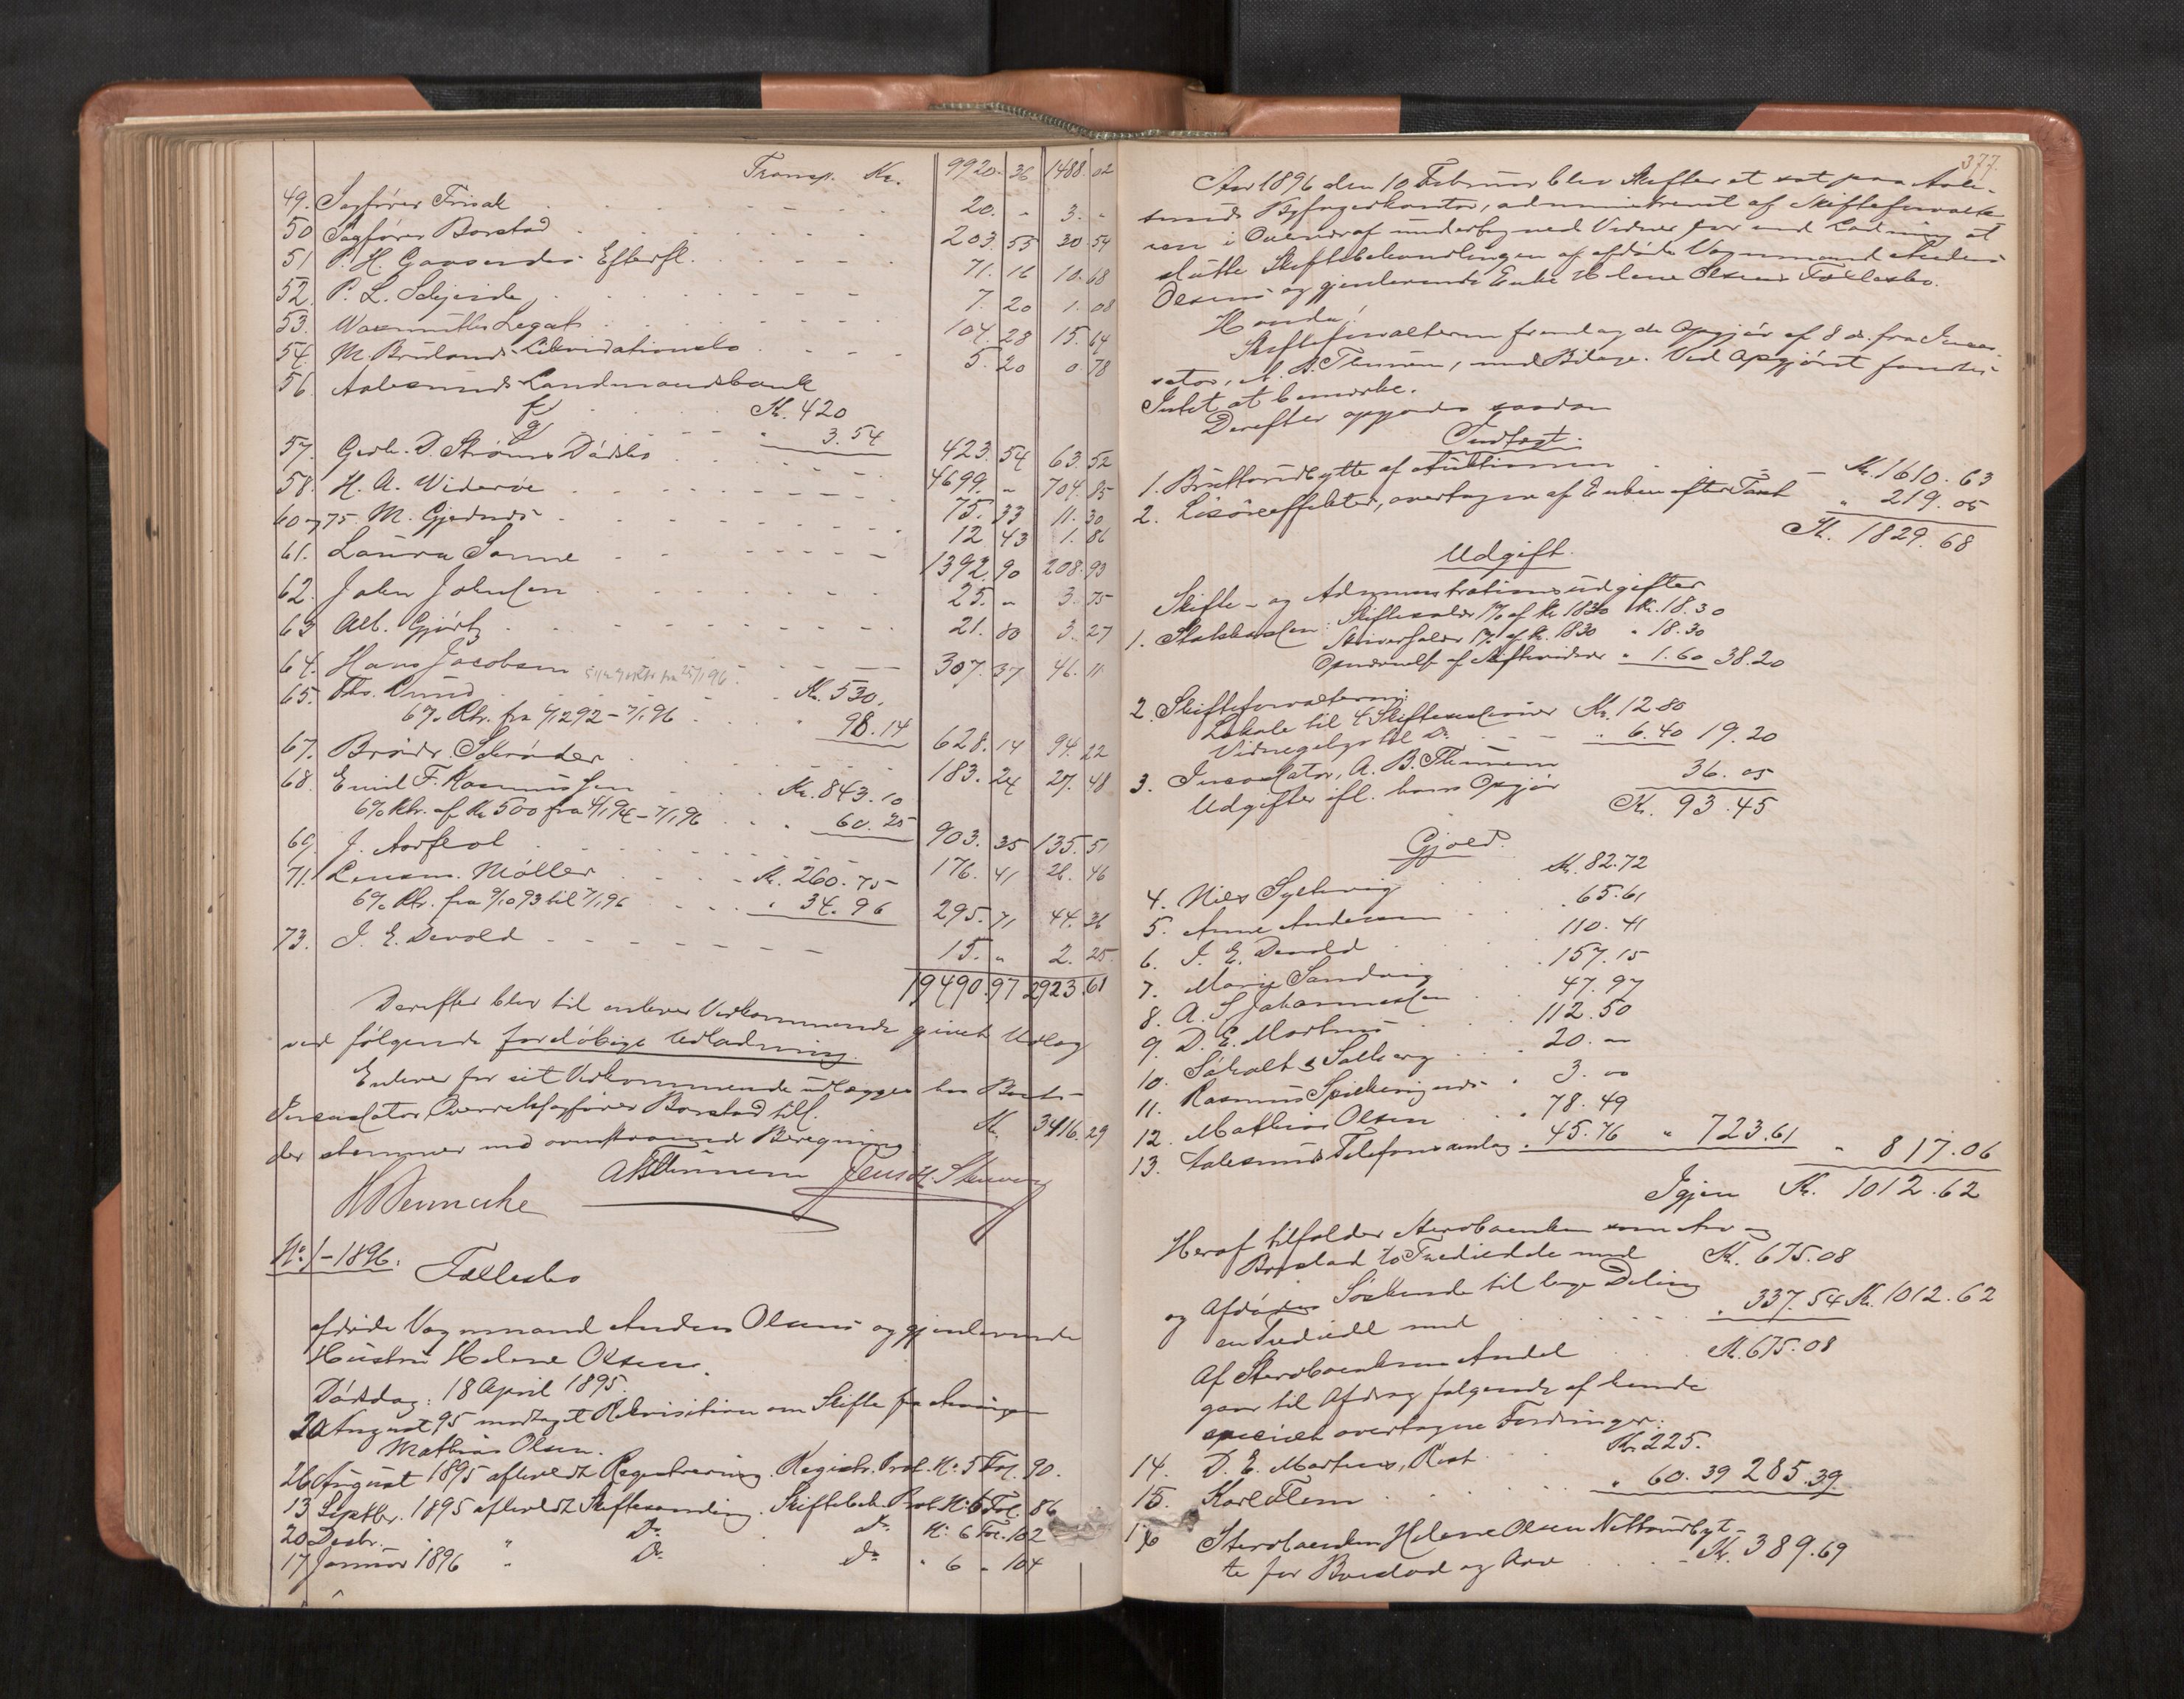 Transp. Kr. 9920. 36 1488. 02
49. Sagfører Frisak 20. „ 3. „
50 Sagfører Borstad 203. 55 30. 54
51 P. H. Gaasendes Efterfl. 71. 16 10. 68
52. P. L. 7. 20 1. 08
53. Legat 104. 28 15. 64
54. M. Likvidationsbo 5. 20 0. 78
56. Aalesunds Landmandsbank
f) Kr. 420
g) " 3.54 423. 54 63. 52
57. Gerh. D. Strøms Dødsbo 4699. „ 704. 85
58. H. A. Widerøe 75. 33 11. 30
60 og 75. M. Gjednes 12 43 1. 86
61. Laura Sonne 1392. 90 208. 93
62. John Johnsen 25. „ 3. 75
63 Alb. Gjørtz 21. 80 3. 27
64. Hans Jacobsen 307. 37 46. 11
65. Ths. Rund Kr. 530.
6% Rtr. fra 4/12 92 – 7/1 96 " 98.14 628. 14 94. 22
67. Brødr. Schrøder 183. 24 27. 48
68. Emil F. Rasmussen Kr. 843.10
6% Rtr. af Kr 500 fra 4/1 94 – 7/1 96 " 60. 25 903. 35 135. 51
69. J. Aarflot 176. 41 26. 46
71. Lensm. Møller Kr. 260. 75
6% Rtr. fra 9/10 93 til 7/1 96 " 34. 96 295. 71 44. 36
73. J. E. Devold 15. „ 2. 25.
19490. 97 2923. 61
Derefter blev til enhver Vedkommende givet Udlæg
ved følgende foreløbige Udlodning.
Enhver for sit Vedkommende udlægges hos Boets
Incassator Overretssagfører Borstad till. Kr. 3416. 29
der stemmer med ovenstaaende Beregning
ABThunem Jens H.
No. 1 – 1896. Fællesbo
afdøde Vognmand Anders Olsens og gjenlevende
Hustru Helene Olsen.
Dødsdag: 18 April 1895.
20 August 95 modtaget Rekvisition om Skifte fra Arvingen
Mathias Olsen.
26 August 1895 afholdt Registrering. Registr. Prot. No. 5 Fol. 90.
13 Septbr. 1895 afholdt Skiftesamling. Skiftebeh. Prot. No. 6 Fol. 86
20 Decbr. " Do. Do. No. 6 Fol. 102
17 Januar 1896 " Do. Do. " 6 " 104
377.
Aar 1896 den 10 Februar blev Skifteret sat paa Aale-
sunds Byfogedkontor, administreret af Skifteforvalte-
ren i Overvær af undertegnede Vidner for ved Lodning at
slutte Skiftebehandlingen af afdøde Vognmand Anders
Olsens og gjenlevende Enke Helene Olsens Fællesbo.
Hvorda:
Skifteforvalteren fremlagde Opgjør af 8 ds. fra Incas-
sator, A. B. Thunem, med Bilage. Ved Opgjøret fandtes
Intet at bemærke.
Derefter opgjordes saadan
Indtægt.
1. Bruttoudbytte af Auktionen Kr. 1610. 63
2. Løsøreeffekter, overtagen af Enken efter Taxt " 219. 05
Kr. 1829. 68
Udgift.
Skifte- og Administrationsudgifter
1. Statskassen: Skiftesalær 1% af Kr 1830 Kr. 18.30
Arveafgift 1% af Kr. 1830 " 18.30
Opnævnelse af Skiftevidner " 1.60 38.20
2. Skifteforvalteren:
Lokale til 4 Skiftesamlinger Kr. 12 80
Vidnegebyr til Do. " 6.40 19. 20
3. Incassator, A. B. Thunem
Udgifter ifl. hans Opgjør 36. 05
Kr. 93. 45
Gjæld.
4. Niels Kr. 82.72
5. Anne Andersen " 65.61
6. J. E. Devold 110. 41
7. Marie Sandvig " 157. 15
8. A. S Johannessen 47. 97
9. D. E. Martens 112. 50
10. Søholt & Solberg 20. „
11. Rasmus 3. „
12. Mathias Olsen " 78. 49
13. Aalesunds Telefonsamlag " 45.76 " 723.61 " 817. 06
Igjen Kr. 1012. 62
Heraf tilfalder Sterboenken som Arv og
Boeslod to Trediedele med Kr. 675.08
og Afdødes Søskende til lige Deling
en Trediedel med " 337. 54 Kr. 1012. 62
Af Sterboenkens Andel Kr. 675. 08
gaar til Afdrag følgende af hende
specielt overtagne Fordringer:
14. D. E. Martens, Rest Kr. 225.
15. Karl Flem " 60. 39 285.39
16 Sterboenken Helene Olsen Nettoudbyt-
te for Boeslod og Arv Kr. 389. 69